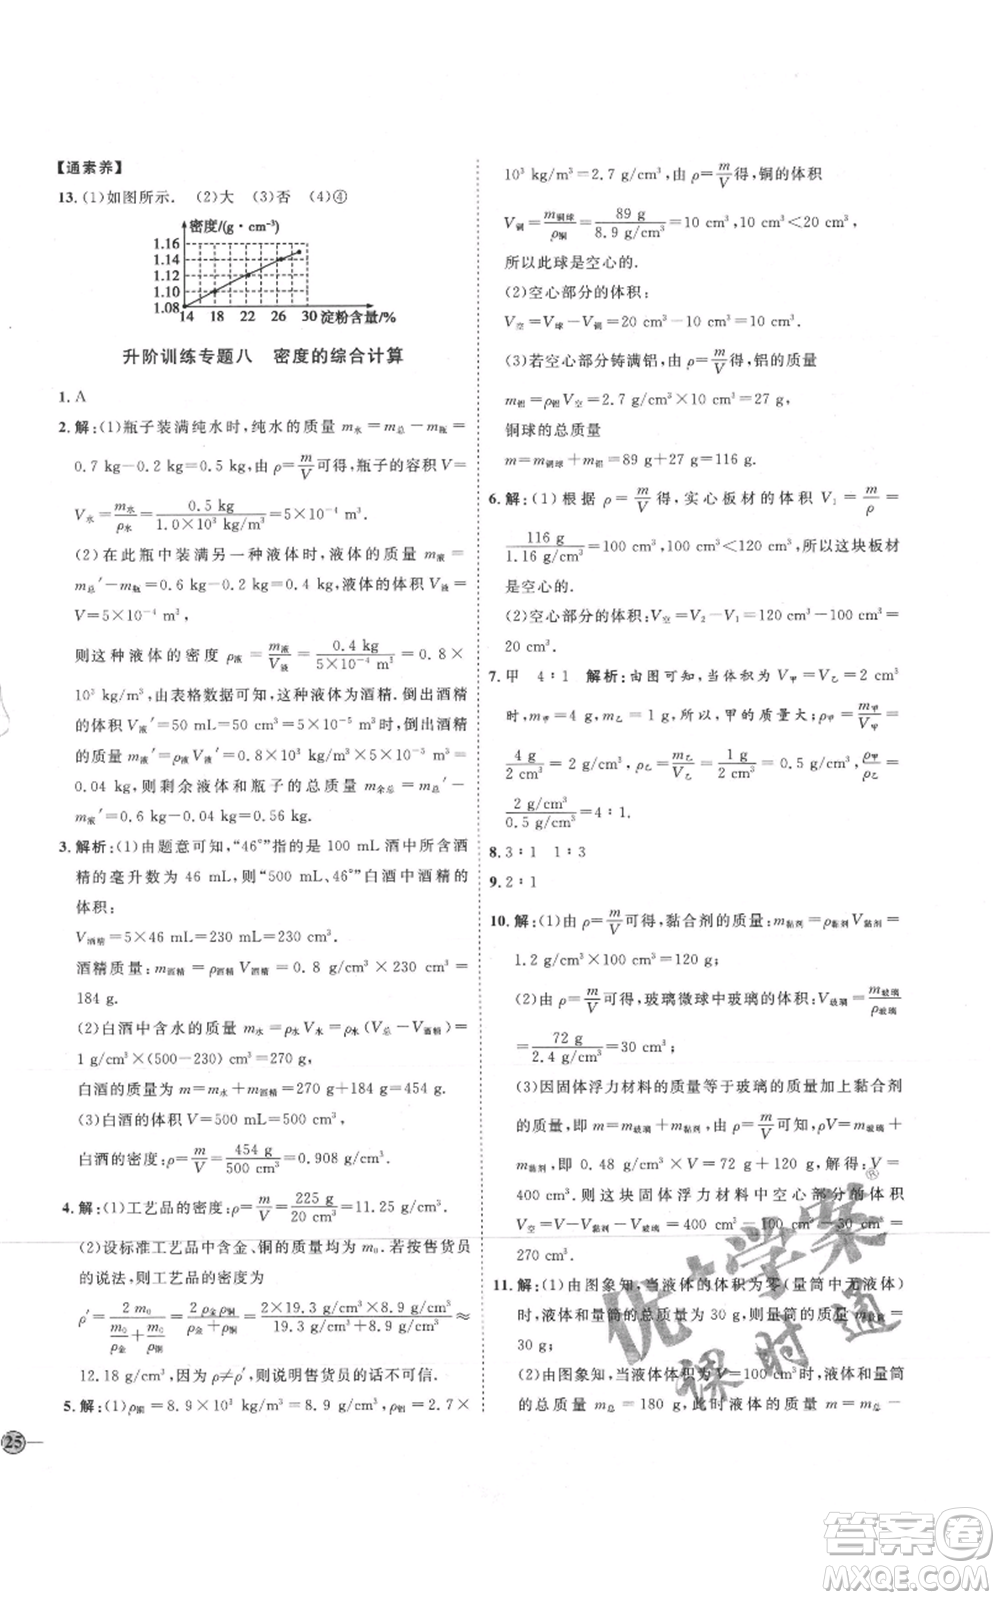 【通素养】
13. (1)如图所示. (2)大 (3)否 (4)④
密度/(g·cm⁻³)
1.16
1.14
1.12
1.10
1.08
14 18 22 26 30 淀粉含量/%
升阶训练专题八 密度的综合计算
1. A
2. 解:(1)瓶子装满纯水时,纯水的质量 m水=m总-m瓶=
0.7 kg-0.2 kg=0.5 kg,由 ρ=m/V可得,瓶子的容积 V=
V水=m水/ρ水=0.5 kg/(1.0×10³ kg/m³)=5×10⁻⁴ m³.
(2)在此瓶中装满另一种液体时,液体的质量 m液=
m总′-m瓶=0.6 kg-0.2 kg=0.4 kg,液体的体积 V液=
V=5×10⁻⁴ m³,
则这种液体的密度 ρ液=m液/V液=0.4 kg/(5×10⁻⁴ m³)=0.8×
10³ kg/m³,由表格数据可知,这种液体是酒精.倒出酒精
的体积 V液′=50 mL=50 cm³=5×10⁻⁵ m³,倒出酒精
的质量 m液′=ρ液V液′=0.8×10³ kg/m³×5×10⁻⁵ m³=
0.04 kg,则剩余液体和瓶子的总质量 m余总=m总′-
m液′=0.6 kg-0.04 kg=0.56 kg.
3. 解析:(1)由题意可知,“46°”指的是 100 mL 酒中所含酒
精的毫升数为 46 mL,则“500 mL,46°”白酒中酒精的
体积:
V酒精=5×46 mL=230 mL=230 cm³.
酒精质量:m酒精=ρ酒精V酒精=0.8 g/cm³×230 cm³=
184 g.
(2)白酒中含水的质量 m水=ρ水V水=ρ水(V总-V酒精)=
1 g/cm³×(500-230) cm³=270 g,
白酒的质量为 m=m水+m酒精=270 g+184 g=454 g.
(3)白酒的体积 V=500 mL=500 cm³,
白酒的密度:ρ=m/V=454 g/500 cm³=0.908 g/cm³.
4. 解:(1)工艺品的密度:ρ=m/V=225 g/20 cm³=11.25 g/cm³.
(2)设标准工艺品中含金、铜的质量为 m₀.若按售货员
的说法,则工艺品的密度为
ρ′=2m₀/(m₀/ρ金+m₀/ρ铜)=2ρ金ρ铜/(ρ金+ρ铜)=(2×19.3 g/cm³×8.9 g/cm³)/(19.3 g/cm³+8.9 g/cm³)≈
12.18 g/cm³.可得 ρ≠ρ′,则说明售货员的话不可信.
5. 解:(1)ρ铜=8.9×10³ kg/m³=8.9 g/cm³,ρ铝=2.7×
25
10³ kg/m³=2.7 g/cm³,由 ρ=m/V得,铜的体积
V铜=m铜球/ρ铜=89 g/(8.9 g/cm³)=10 cm³,10 cm³<20 cm³,
所以此球是空心的.
(2)空心部分的体积:
V空=V球-V铜=20 cm³-10 cm³=10 cm³.
(3)若空心部分铸满铝,由 ρ=m/V得,铝的质量
m铝=ρ铝V空=2.7 g/cm³×10 cm³=27 g,
铜球的总质量
m=m铜球+m铝=89 g+27 g=116 g.
6. 解:(1)根据 ρ=m/V得,实心板材的体积 V₁=m/ρ=
116 g/(1.16 g/cm³)=100 cm³,100 cm³<120 cm³,所以这块板材
是空心的.
(2)空心部分的体积:V空=V₂-V₁=120 cm³-100 cm³=
20 cm³.
7. 甲 4∶1 解析:由图可知,当体积 V甲=V乙=2 cm³
时,m甲=4 g,m乙=1 g,所以,甲的质量大;ρ甲=m甲/V甲=
4 g/2 cm³=2 g/cm³,ρ乙=m乙/V乙=1 g/2 cm³=0.5 g/cm³,ρ甲/ρ乙=
2 g/cm³/0.5 g/cm³=4∶1.
8. 3∶1 1∶3
9. 2∶1
10. 解:(1)由 ρ=m/V可得,黏合剂的质量:m黏剂=ρ黏剂V黏剂=
1.2 g/cm³×100 cm³=120 g.
(2)由 ρ=m/V可得,玻璃微球中玻璃的体积:V玻璃=m玻璃/ρ玻璃
=72 g/(2.4 g/cm³)=30 cm³.
(3)因固体浮力材料的质量等于玻璃的质量加上黏合剂
的质量,即 m=m玻璃+m黏剂,由 ρ=m/V可得,ρV=m玻璃+
m黏剂,即 0.48 g/cm³×V=72 g+120 g,解得:V=
400 cm³.则这块固体浮力材料中空心部分的体积
V空=V-V黏剂-V玻璃=400 cm³-100 cm³-30 cm³=
270 cm³.
11. 解:(1)由图象知,当液体的体积为零(量筒中无液体)
时,液体和量筒的总质量为 30 g,则量筒的质量 m筒=
30 g;
(2)由图象知,当液体体积 V=
的总质量 m总=180 g,此时液体的质量 m=m总-
优+学案®
课时通
答案卷
MXQE.COM